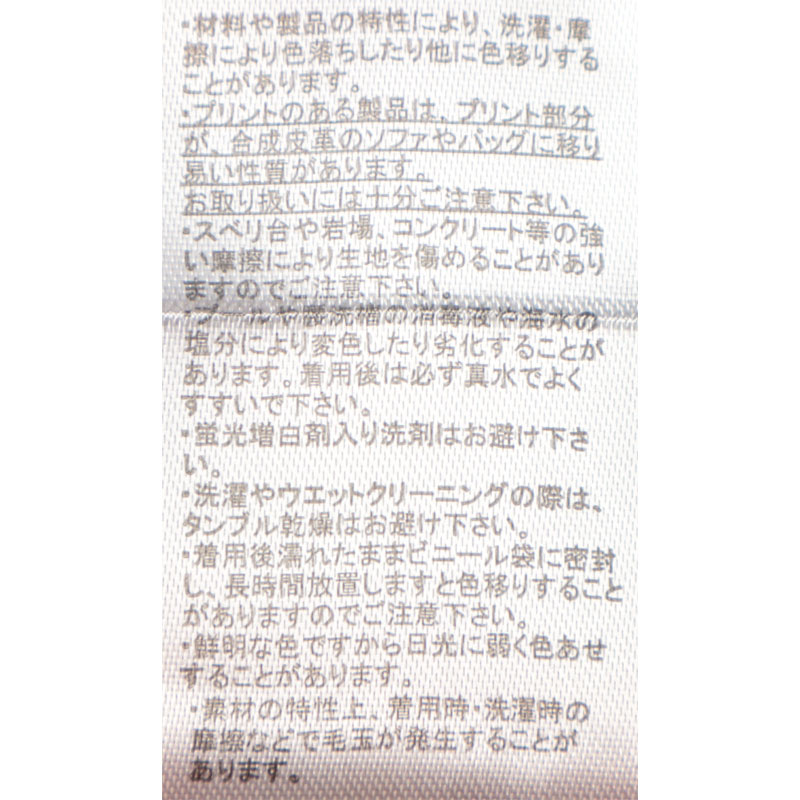 ・材料や製品の特性により、洗濯・摩
擦により色落ちしたり他に色移りする
ことがあります。
・プリントのある製品は、プリント部分
が、合成皮革のソファやバッグに移り
易い性質があります。
お取り扱いには十分ご注意下さい。
・スベリ台や岩場、コンクリート等の強
い摩擦により生地を傷めることがあり
ますのでご注意下さい。
・プールや腰洗槽の消毒液や海水の
塩分により変色したり劣化することが
あります。着用後は必ず真水でよく
すすいで下さい。
・蛍光増白剤入り洗剤はお避け下さ
い。
・洗濯やウエットクリーニングの際は、
タンブル乾燥はお避け下さい。
・着用後濡れたままビニール袋に密封
し、長時間放置しますと色移りすること
がありますのでご注意下さい。
・鮮明な色ですから日光に弱く色あせ
することがあります。
・素材の特性上、着用時・洗濯時の
摩擦などで毛玉が発生することが
あります。